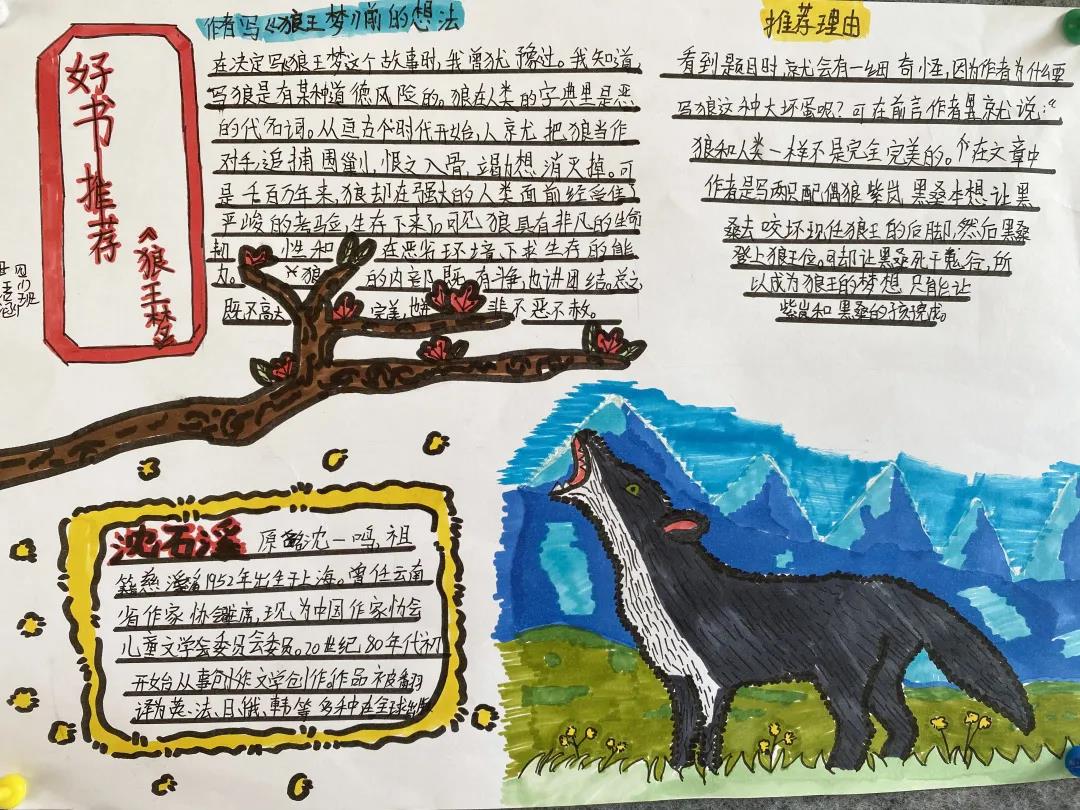 好书推荐
《狼王梦》
作者写《狼王梦》前的想法
在决定写《狼王梦》这个故事时,我曾犹豫过。我知道,
写狼是有某种道德风险的。狼在人类的字典里是恶
的代名词。从亘古个时代开始,人就把狼当作
对手,追捕围剿,恨之入骨,竭力想消灭掉。可
是千百万年来,狼却在强大的人类面前经受住了
严峻的考验,生存下来了。可见,狼具有非凡的生命
韧性和在恶劣环境下求生存的能
力。狼的内部,既有斗争,也讲团结。总之,
既不高大完美,也非不恶不赦。
推荐理由
看到题目时,就会有一细奇怪,因为作者为什么要
写狼这种大坏蛋呢?可在前言作者就说:“
狼和人类一样不是完全完美的。”在文章中
作者是写两只配偶狼紫岚,黑桑本想让黑
桑去咬坏现任狼王的后脚,然后黑桑
登上狼王位。可却让黑桑死于鬼谷,所
以成为狼王的梦想只能让
紫岚和黑桑的孩子完成。
沈石溪 原名沈一鸣,祖
籍慈溪,1952年出生于上海。曾任云南
省作家协会副主席,现为中国作家协会
儿童文学委员会委员。20世纪80年代初
开始从事创作文学创作。作品被翻
译为英、法、日、俄、韩等多种在全球出版